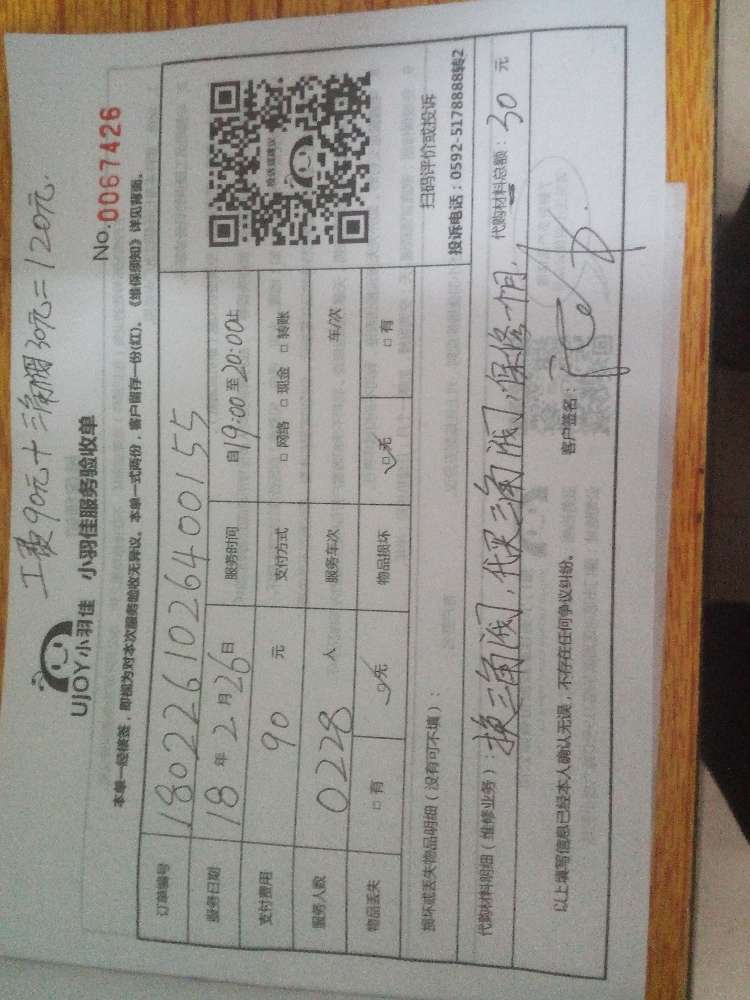 工费90元+三角阀30元=120元.
UJOY小羽佳 小羽佳服务验收单
No.0067426
本单一经核签，即视为对本次服务验收无异议，本单一式两份，客户留存一份(红)，《维保须知》详见背面。
订单编号 1802261026400155
服务日期 18年2月26日 服务时间 自19:00至20:00止
支付费用 90 元 支付方式 □网络 □现金 □转账
服务人数 0228 人 服务车次 车/次
物品丢失 □有 □无 物品损坏 □无 □有
投诉或建议
扫码评价或投诉
投诉电话：0592-5178888转2
损坏或丢失物品明细（没有可不填）：
代购材料明细（维修业务）：换三角阀，代买三角阀，保修一个月. 代购材料总额：30 元
以上填写信息已经本人确认无误，不存在任何争议纠纷。 客户签名：